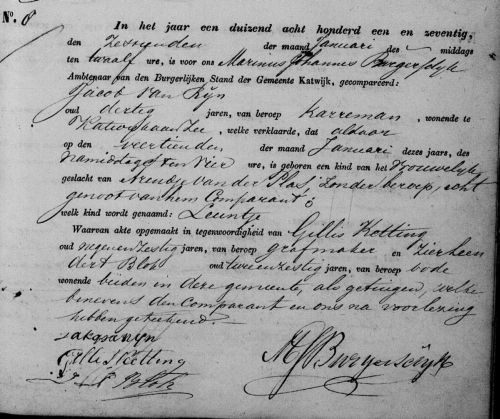 N.º 8
In het jaar een duizend acht honderd een en zeventig,
den zestienden der maand Januari des middags
ten twaalf ure, is voor ons Marinus Johannes Burgersdijk
Ambtenaar van den Burgerlijken Stand der Gemeente Katwijk, gecompareerd:
Jacob van Rijn
oud dertig jaren, van beroep karreman, wonende te
Katwijk aan Zee, welke verklaarde, dat aldaar
op den veertienden der maand Januari dezes jaars, des
namiddags ten vier ure, is geboren een kind van het vrouwelijk
geslacht van Arendje van der Plas, zonder beroep, echt
genoot van hem Comparant
welk kind wordt genaamd: Leuntje
Waarvan akte opgemaakt in tegenwoordigheid van Gillis Ketting
oud negenenzestig jaren, van beroep grafmaker en
dert Blok oud tweeenzestig jaren, van beroep bode
wonende beiden in deze gemeente, als getuigen, welke
benevens den Comparant en ons na voorlezing
hebben geteekend.
Jakop van Rijn
Gillis Ketting
Blok
MJBurgersdijk